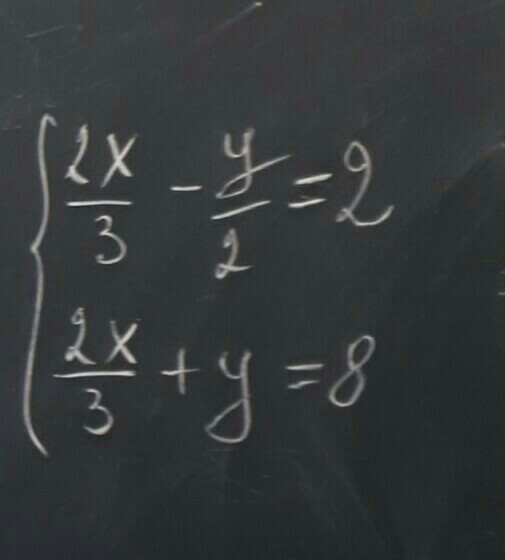 2x/3 - y/2 = 2
2x/3 + y = 8